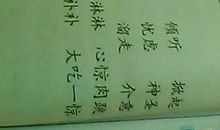 倾听 掀起
忧虑 神圣
溜走 介意
淋淋 心惊肉跳
补补 大吃一惊